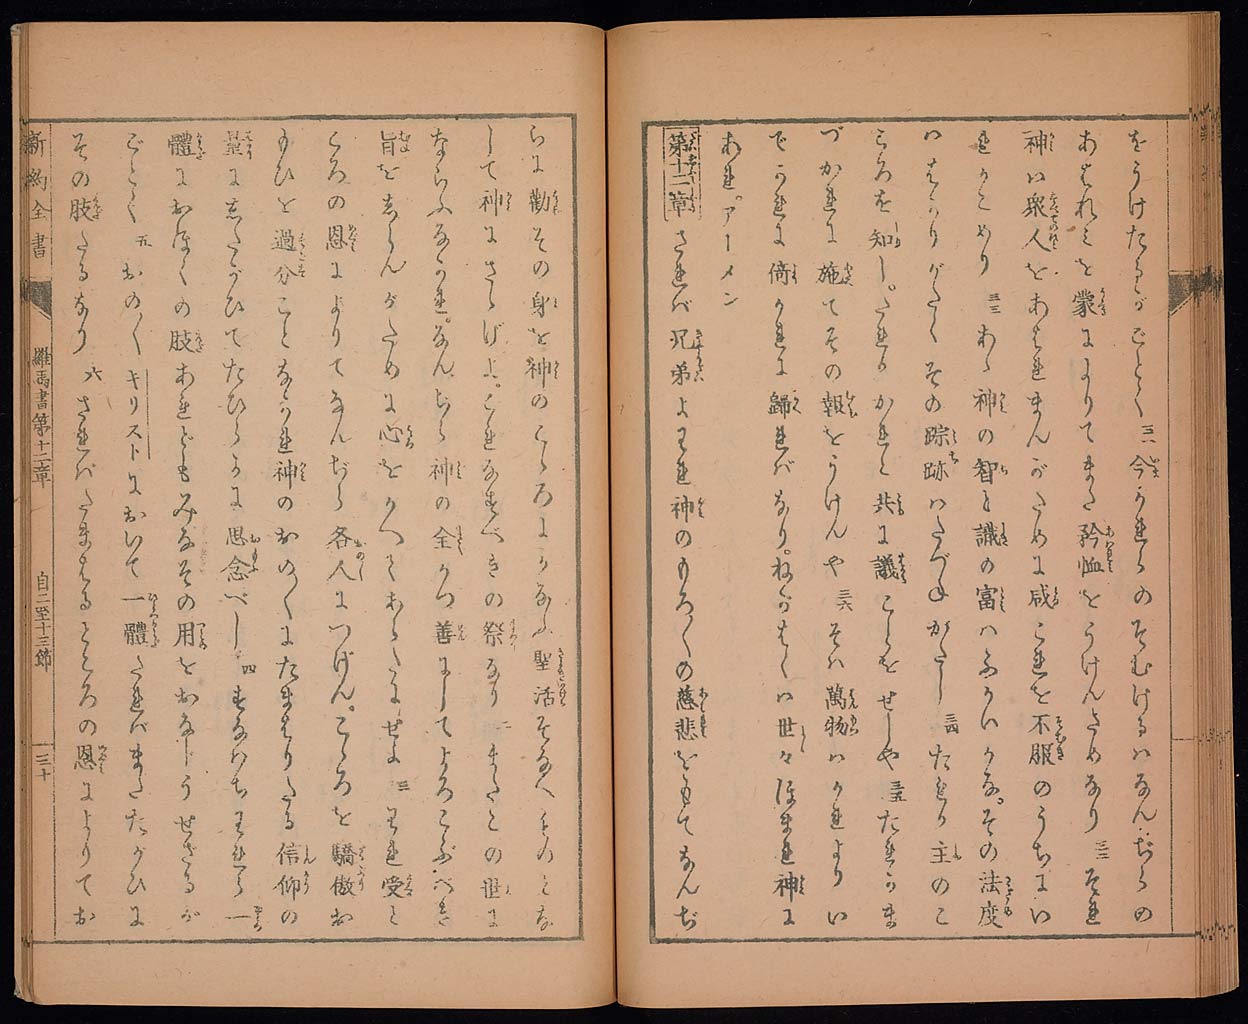 をうけたるがごとく 三一 今かれらのそむけるハなんぢらの
あはれミを蒙によりてまた矜恤をうけんためなり 三二 それ
神ハ衆人をあはれまんがために咸これを不服のうちにい
れかこめり 三三 あゝ神の智と識の富ハふかいかな。その法度
ハはかりがたくその踪跡ハたづねがたし 三四 たれか主のこ
ころを知し。たれかかれと共に議ことをせしや 三五 たれかま
づかれに施てその報をうけんや 三六 そハ萬物ハかれよりい
でかれに倚かれに歸れバなり。ねがはくハ世々ほまれ神に
あれ。アーメン
第十二章 されバ兄弟よわれ神のもろ〳〵の慈悲をもてなんぢ
らに勸その身を神のこゝろにかなふ聖活そなへものとな
して神にさゝげよ。これなすべきの祭なり 二 またこの世に
ならふなかれ。なんぢら神の全かつ善にしてよろこぶべき
旨をしらんがために心をかへてあらたにせよ 三 われ受し
ころの恩によりてなんぢら各人につげん。こゝろを驕傲お
もひを過分ことなかれ神のおの〳〵にたまはりたる信仰の
量にしたがひてたひらかに思念べし 四 すなハちわれら一
體におほくの肢あれどもみなその用をおなじうせざるが
ごとく 五 おの〳〵キリストにおいて一體たれバまたたがひに
その肢たるなり 六 されバたまはるところの恩によりてお
新約全書 羅馬書第十二章 自二至十三節 一三十